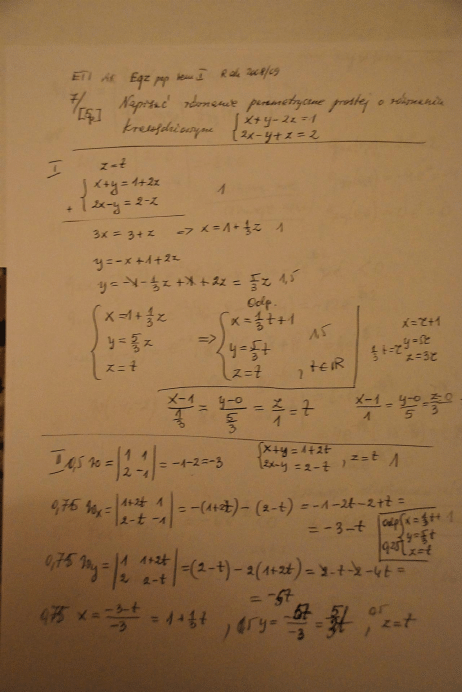 ETI Egz pop sem I Rok 2008/09
7/ Napisać równanie parametryczne prostej o równaniu
[5p] krawędziowym { x+y-2z=1
2x-y+z=2
I z=t
x+y=1+2z 1
+ { 2x-y=2-z
3x = 3+z => x=1+1/3 z 1
y=-x+1+2z
y= -1-1/3 z +1+2z = 5/3 z 1,5
Odp.
{ x=1+1/3 z => { x=1/3 t+1 x=τ+1
y=5/3 z y=5/3 t 1,5 1/3 t=τ y=5τ
z=t z=t , t∈R z=3τ
(x-1)/(1/3) = (y-0)/(5/3) = z/1 = t (x-1)/1 = (y-0)/5 = (z-0)/3
II 0,5 W = |1 1; 2 -1| = -1-2=-3 { x+y=1+2t; 2x-y=2-t , z=t 1
0,75 Wx = |1+2t 1; 2-t -1| = -(1+2t)-(2-t) = -1-2t-2+t =
= -3-t
odp { x=1/3 t+1
y=5/3 t
0,25 z=t
0,75 Wy = |1 1+2t; 2 2-t| = (2-t)-2(1+2t) = 2-t-2-4t =
= -5t
0,75 x = (-3-t)/(-3) = 1+1/3 t , y = (-5t)/(-3) = 5/3 t , 0,5 z=t